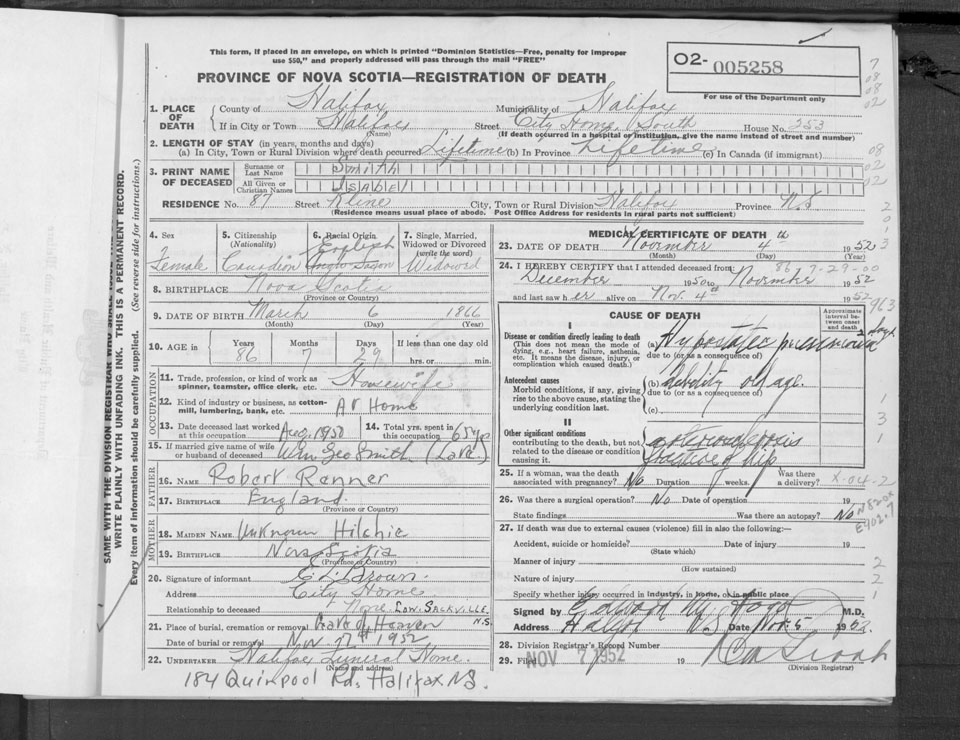 This form, if placed in an envelope, on which is printed "Dominion Statistics—Free, penalty for improper
use $50," and properly addressed will pass through the mail "FREE"
PROVINCE OF NOVA SCOTIA—REGISTRATION OF DEATH
O2- 005258
For use of the Department only
1. PLACE OF DEATH
County of Halifax Municipality of Halifax
If in City or Town Halifax Street City Home, South House No. 253
(Name) (If death occurred in a hospital or institution, give the name instead of street and number)
2. LENGTH OF STAY (in years, months and days)
(a) In City, Town or Rural Division where death occurred Lifetime (b) In Province Lifetime (c) In Canada (if immigrant)
3. PRINT NAME OF DECEASED
Surname or Last Name Smith
All Given or Christian Names Isabel
RESIDENCE No. 87 Street Kline City, Town or Rural Division Halifax Province NS
(Residence means usual place of abode. Post Office Address for residents in rural parts not sufficient)
4. Sex Female
5. Citizenship (Nationality) Canadian
6. Racial Origin English Anglo Saxon
7. Single, Married, Widowed or Divorced (write the word) Widowed
8. BIRTHPLACE Nova Scotia
(Province or Country)
9. DATE OF BIRTH March 6 1866
(Month) (Day) (Year)
10. AGE in Years 86 Months 7 Days 29 If less than one day old hrs. or min.
OCCUPATION
11. Trade, profession, or kind of work as spinner, teamster, office clerk, etc. Housewife
12. Kind of industry or business, as cotton-mill, lumbering, bank, etc. At Home
13. Date deceased last worked at this occupation Aug 1950
14. Total yrs. spent in this occupation 65 yrs
15. If married give name of wife or husband of deceased Wm Geo Smith (Late)
FATHER
16. NAME Robert Renner
17. BIRTHPLACE England
(Province or Country)
MOTHER
18. MAIDEN NAME Unknown Hilchie
19. BIRTHPLACE Nova Scotia
(Province or Country)
20. Signature of informant E L Brown.
Address City Home
Relationship to deceased None
LOW. SACKVILLE N.S.
21. Place of burial, cremation or removal Gate of Heaven
Date of burial or removal Nov. 7th 1952
22. UNDERTAKER Halifax Funeral Home.
(Name and address)
184 Quinpool Rd, Halifax NS.
MEDICAL CERTIFICATE OF DEATH
23. DATE OF DEATH November 4th 1952
(Month) (Day) (Year)
86 7-29-00
24. I HEREBY CERTIFY that I attended deceased from
December 1950 to November 1952
and last saw her alive on Nov. 4th 1952
CAUSE OF DEATH
Approximate interval between onset and death
I
Disease or condition directly leading to death
(This does not mean the mode of dying, e.g., heart failure, asthenia, etc. It means the disease, injury, or complication which caused death.)
(a) Hypostatic pneumonia 2 days
due to (or as a consequence of)
Antecedent causes
Morbid conditions, if any, giving rise to the above cause, stating the underlying condition last.
(b) debility old age.
due to (or as a consequence of)
(c)
II
Other significant conditions
contributing to the death, but not related to the disease or condition causing it.
arteriosclerosis
fracture of hip
25. If a woman, was the death associated with pregnancy? No Duration weeks. Was there a delivery?
X-04-2
26. Was there a surgical operation? No Date of operation 19
State findings Was there an autopsy? No
N820X
E902.7
27. If death was due to external causes (violence) fill in also the following:—
Accident, suicide or homicide? Date of injury 19
(State which)
Manner of injury
(How sustained)
Nature of injury
Specify whether injury occurred in industry, in home, or in public place
Signed by Edward M. M.D.
Address Halifax N.S. Date Nov. 5 1952.
28. Division Registrar's Record Number
29. Filed NOV 7 1952 19
(Division Registrar)
SAME WITH THE DIVISION REGISTRAR WHO SHALL ISSUE
WRITE PLAINLY WITH UNFADING INK. THIS IS A PERMANENT RECORD.
Every item of information should be carefully supplied. (See reverse side for instructions.)